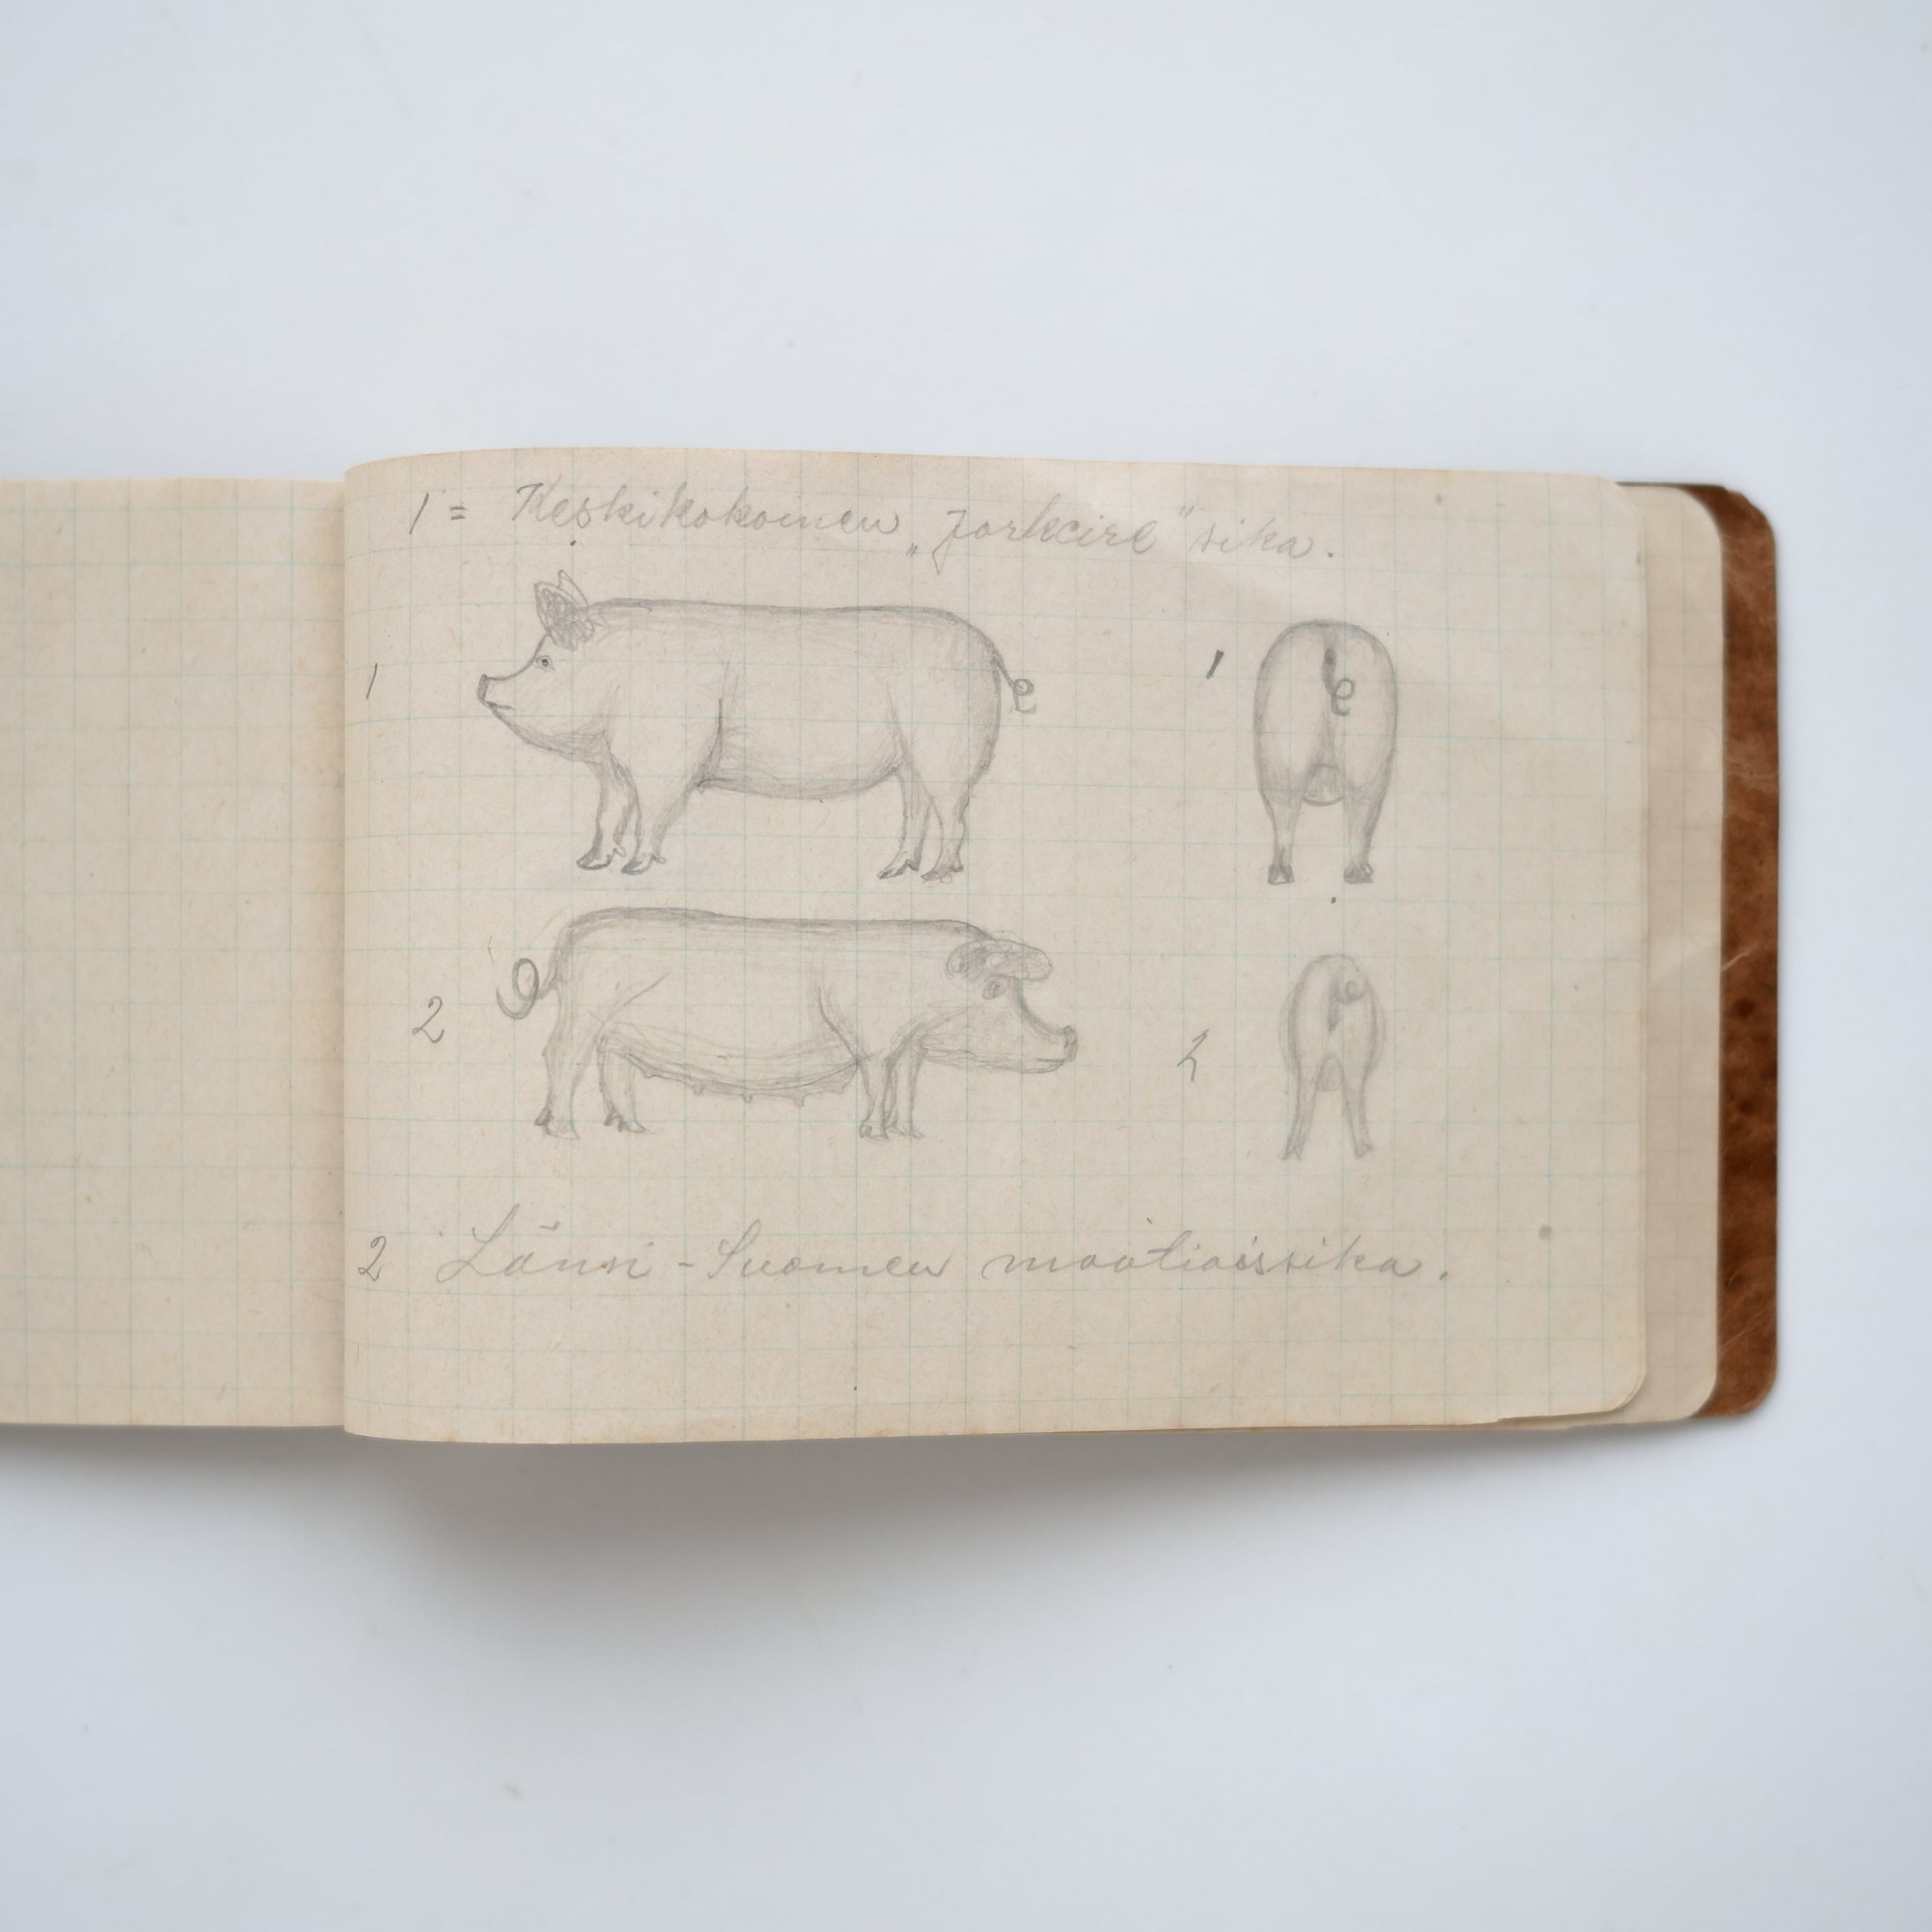 1 = Keskikokoinen „jorkcire" sika.
1 1
2 2
2 Länsi-Suomen maatiaissika.